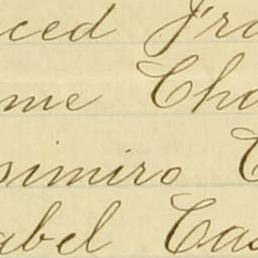 ced Fra
me Cha
simiro C
abel Cas